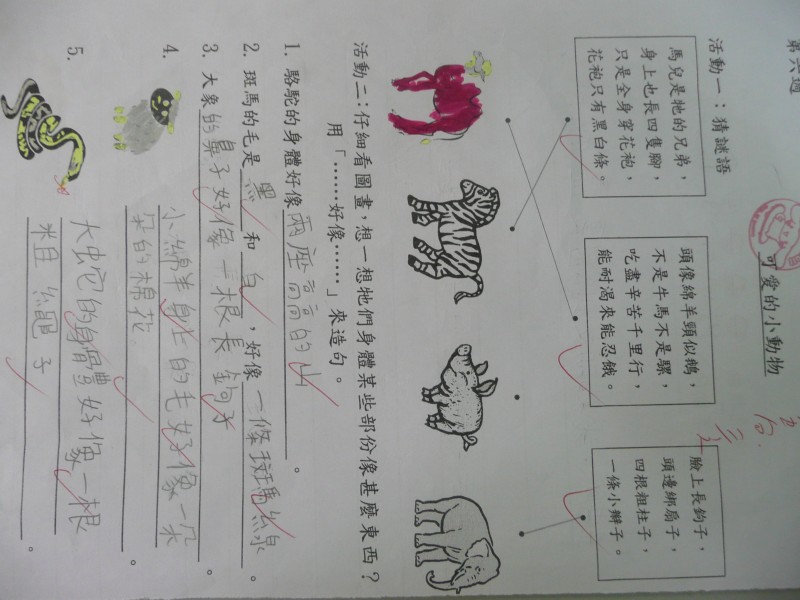 第六週
可愛的小動物
活動一：猜謎語
馬兒是牠的兄弟，
身上也長四隻腳，
只是全身穿花袍，
花袍只有黑白條。
頭像綿羊頸似鵝，
不是牛馬不是騾，
吃盡辛苦千里行，
能耐渴來能忍餓。
臉上長鉤子，
頭邊綁扇子，
四根粗柱子，
一條小辮子。
活動二：仔細看圖畫，想一想牠們身體某些部份像甚麼東西？
用「……好像……」來造句。
1. 駱駝的身體好像兩座高高的山。
2. 斑馬的毛是黑和白，好像一條斑馬線。
3. 大象的鼻子好像一根長鉤子。
4. 小綿羊身上的毛好像一朵
朵的棉花。
5. 大蛇的身體好像一根
粗繩子。